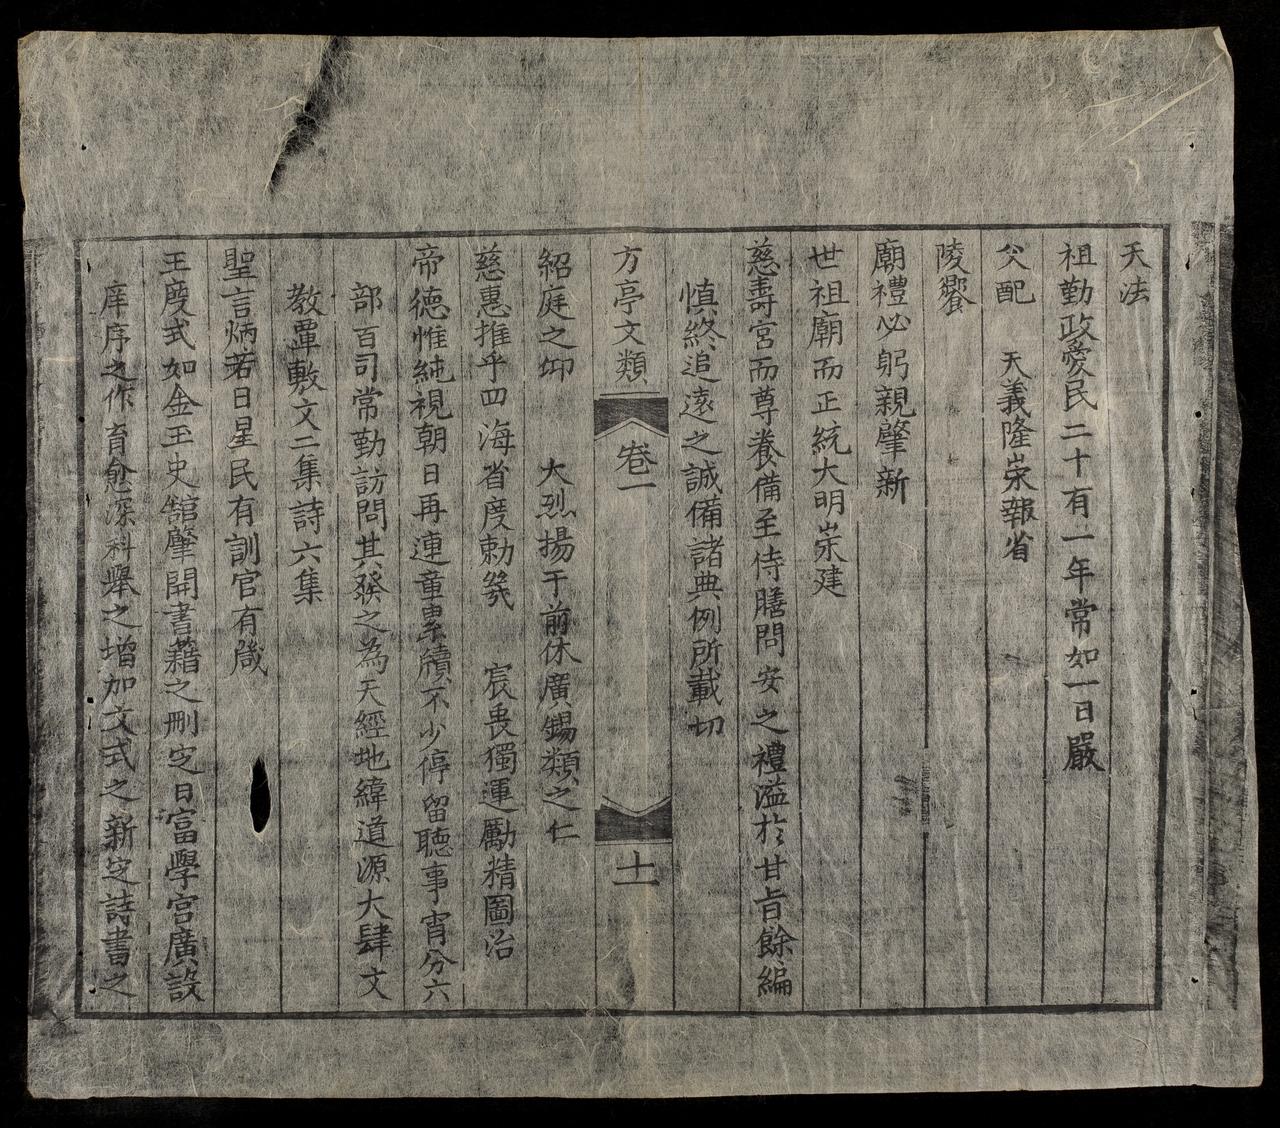 天法
祖勤政愛民二十有一年常如一日嚴
父配 天義隆崇報省
陵饗
廟禮必躬親肇新
世祖廟而正統大明崇建
慈壽宮而尊養備至侍膳問安之禮溢於甘旨餘編
慎終追遠之誠備諸典例所載切
方亭文類 卷一 十一
紹庭之仰 大烈揚于前休廣錫類之仁
慈惠推乎四海省度勅幾 宸衷獨運勵精圖治
帝德惟純視朝日再連章累牘不少停留聽事宵分六
部百司常勤訪問其發之為天經地緯道源大肆文
教覃敷文二集詩六集
聖言炳若日星民有訓官有箴
王度式如金玉史舘肇開書藉之刪定日富學宮廣設
庠序之作育愈深科舉之增加文式之新定詩書之